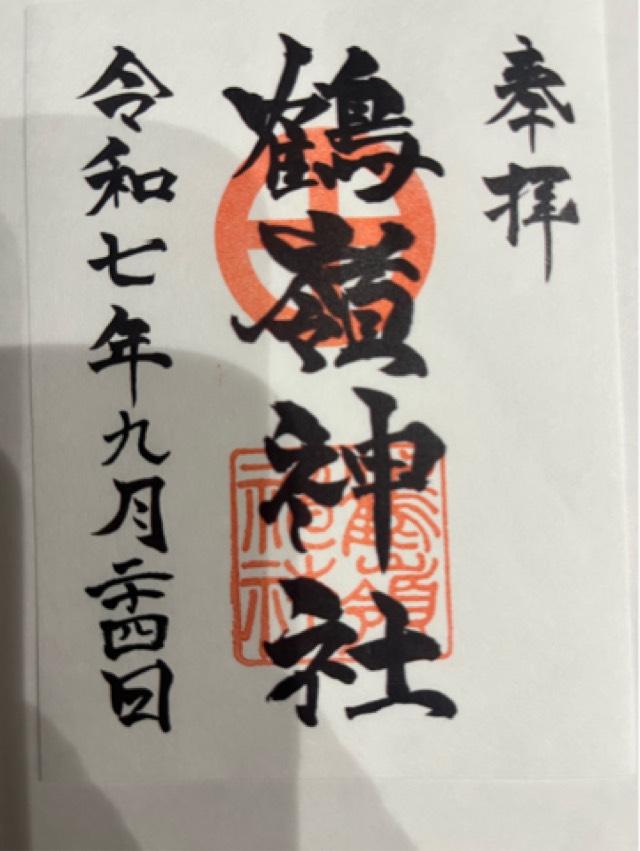 奉拝
鶴嶺神社
令和七年九月二十四日
鶴嶺
神社